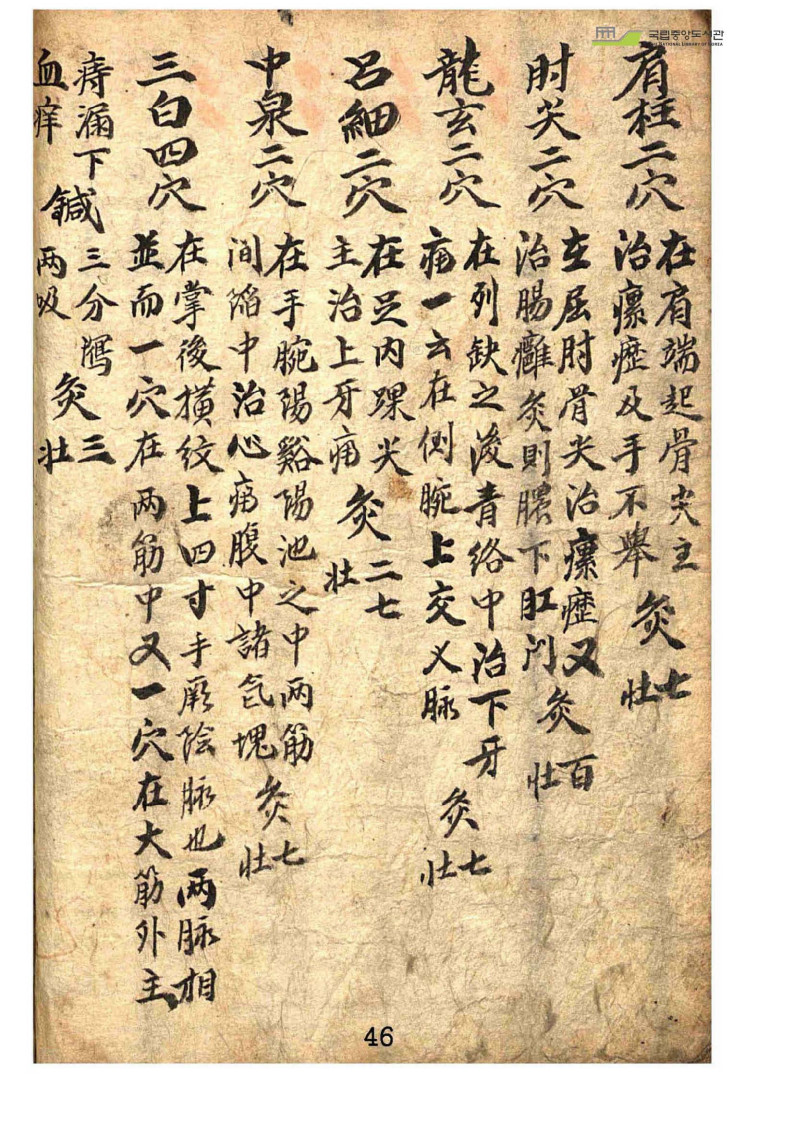 国립중앙도서관
NATIONAL LIBRARY OF KOREA
肩柱二穴
在肩端起骨尖主
治瘰癧及手不舉
灸七壯
肘尖二穴
在屈肘骨尖治瘰癧又
治腸癰灸則膿下肛门
灸百壯
龍玄二穴
在列缺之後青络中治下牙
痛一云在側腕上交叉脉
灸七壯
呂細二穴
在足内踝尖
主治上牙痛
灸二七壯
中泉二穴
在手腕陽谿陽池之中两筋
间陷中治心痛腹中諸氣塊
灸七壯
三白四穴
在掌後横纹上四寸手厥陰脉也两脉相
並而一穴在两筋中又一穴在大筋外主
痔漏下
血痒
鍼三分
两吸
灸三壯
46